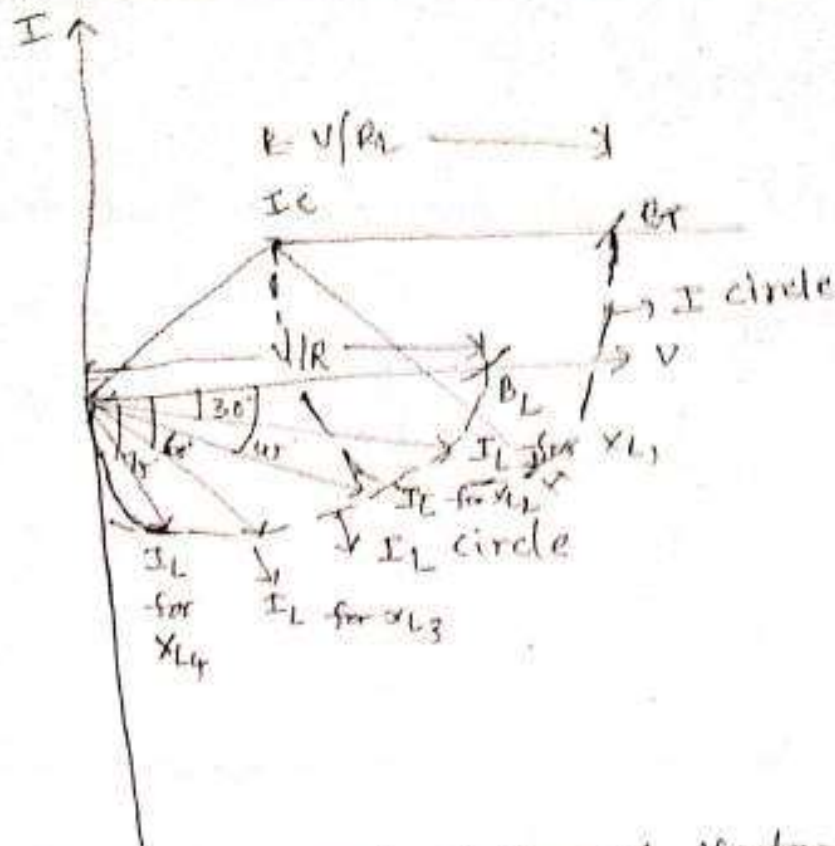 I
V/RL
IC
BT
I circle
V/R
V
BL
30°
45
60°
75°
IL for XL1
IL for XL2
IL circle
IL
for
XL4
IL for XL3